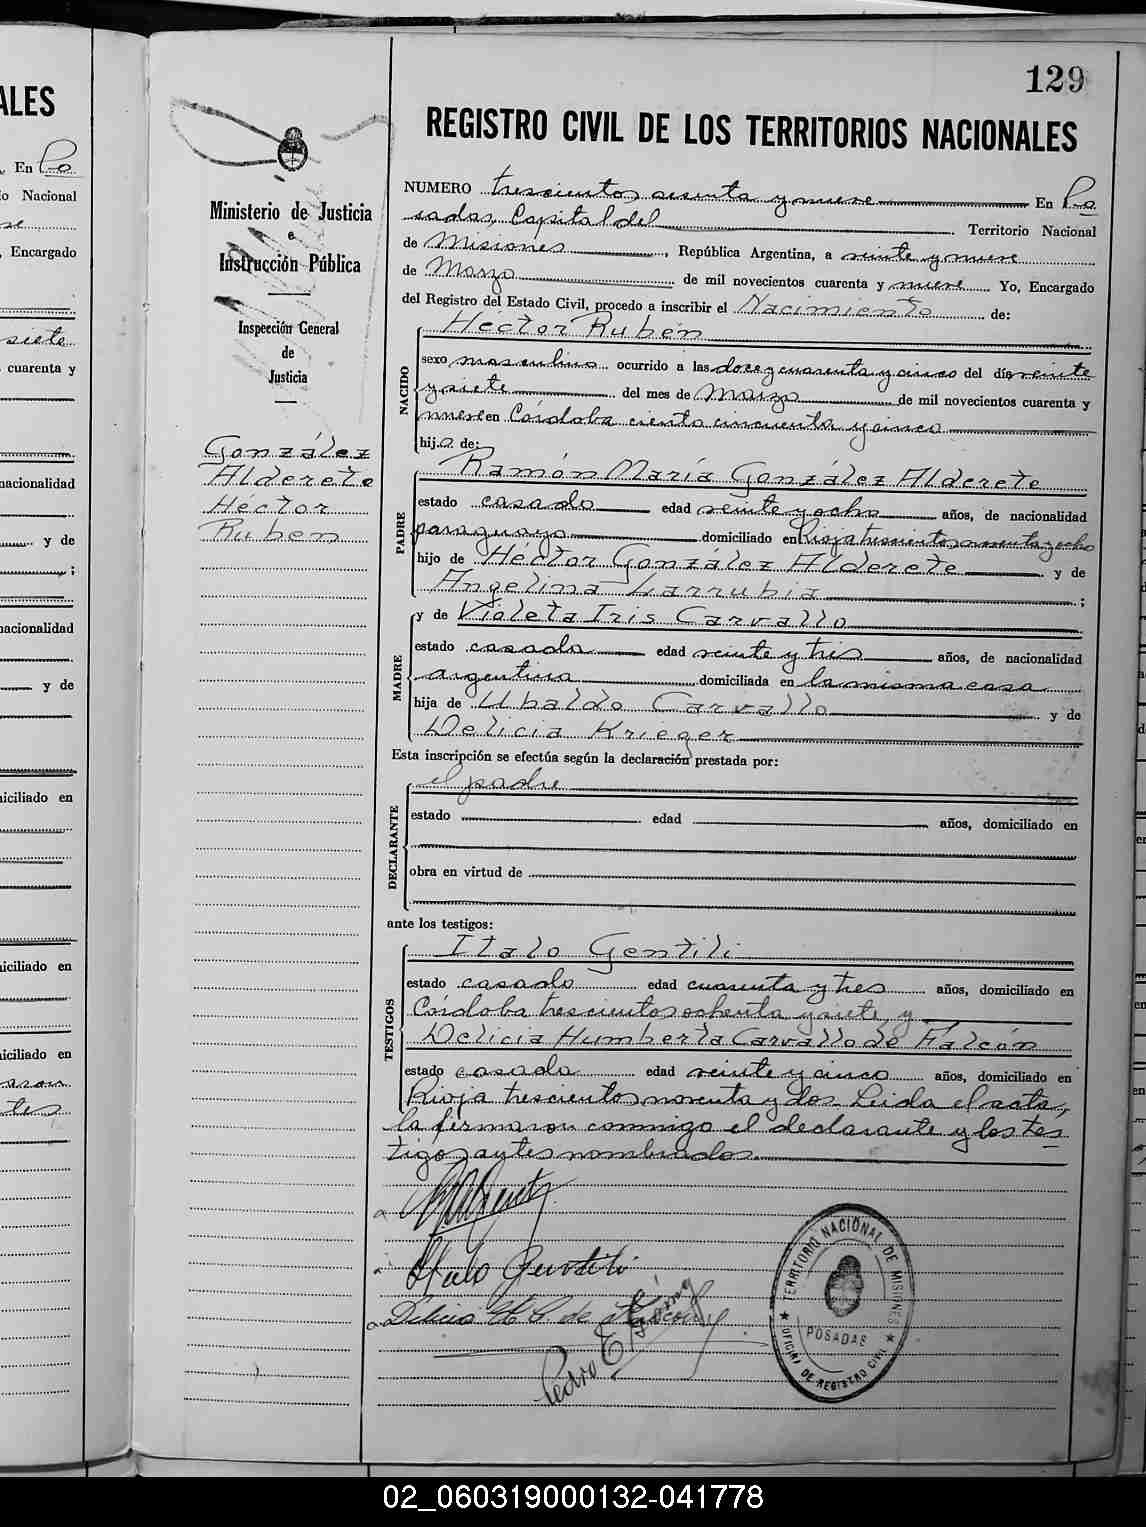 129
REGISTRO CIVIL DE LOS TERRITORIOS NACIONALES
Ministerio de Justicia
e
Instrucción Pública
Inspección General
de
Justicia
González
Alderete
Héctor
Ruben
NUMERO trescientos sesenta y nueve En Po
sadas, Capital del Territorio Nacional
de Misiones, República Argentina, a veinte y nueve
de Marzo de mil novecientos cuarenta y nueve Yo, Encargado
del Registro del Estado Civil, procedo a inscribir el Nacimiento de:
NACIDO
Héctor Rubén
sexo masculino ocurrido a las doce y cuarenta y cinco del día veinte
y siete del mes de Marzo de mil novecientos cuarenta y
nueve en Córdoba ciento cincuenta y cinco
hijo de:
PADRE
Ramón María González Alderete
estado casado edad veinte y ocho años, de nacionalidad
paraguayo domiciliado en Rioja trescientos noventa y ocho
hijo de Héctor González Alderete y de
Angelina Larrubia;
MADRE
y de Violeta Iris Carvallo
estado casada edad veinte y tris años, de nacionalidad
argentina domiciliada en la misma casa
hija de Ubaldo Carvallo y de
Delicia Krieger
Esta inscripción se efectúa según la declaración prestada por:
DECLARANTE
el padre
estado edad años, domiciliado en
obra en virtud de
ante los testigos:
TESTIGOS
Italo Gentili
estado casado edad cuarenta y tres años, domiciliado en
Córdoba trescientos ochenta y siete, y
Delicia Humberta Carvallo de Falcón
estado casada edad veinte y cinco años, domiciliado en
Rioja trescientos noventa y dos. Leida el acta,
la firmaron conmigo el declarante y los tes
tigos antes nombrados.
Italo Gentili
Delicia H C. de Falcón
Pedro E
TERRITORIO NACIONAL DE MISIONES
POSADAS
OFICINA DE REGISTRO CIVIL
ALES
En Po
o Nacional
, Encargado
siete
cuarenta y
nacionalidad
y de
;
nacionalidad
y de
iciliado en
iciliado en
iciliado en
02_060319000132-041778